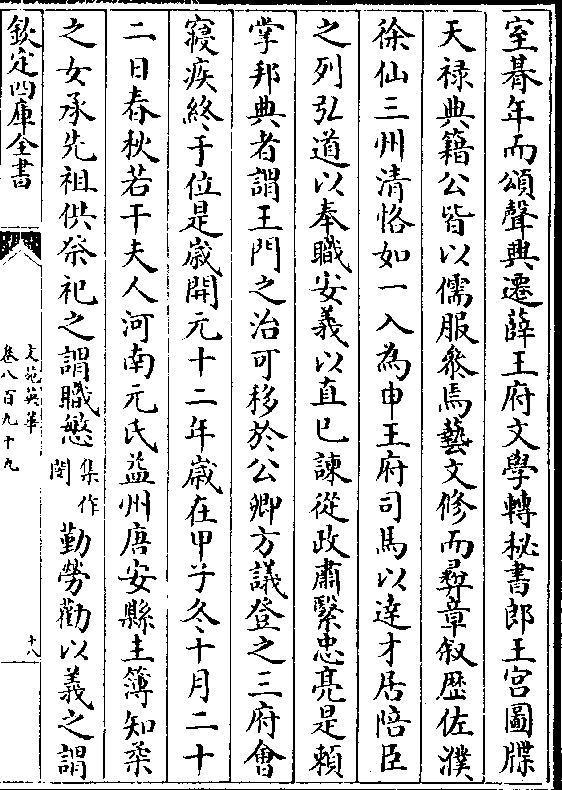 室朞年而頌聲興遷薛王府文學轉秘書郎王宮圖牒
天禄典籍公皆以儒服叅焉藝文修而彛章叙歴佐濮
徐仙三州清恪如一入為申王府司馬以達才居陪臣
之列弘道以奉職安義以直已諫從政肅繄忠亮是頼
掌邦典者謂王門之治可移於公卿方議登之三府會
寢疾終于位是嵗開元十二年嵗在甲子冬十月二十
二日春秋若干夫人河南元氏益州唐安縣主簿知柔
之女承先祖供祭祀之謂職慜集作閔勤勞勸以義之謂
欽定四庫全書
文苑英華
卷八百九十九
十八